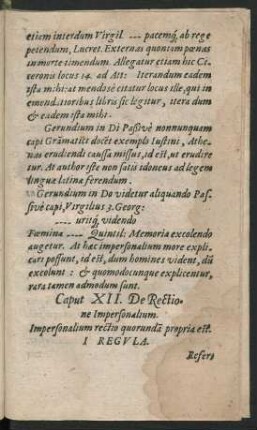 etiem interdum Virgil. ---- pacemq́; ab rege
petendum, Lucret. Externas quoniam pœnas
in morte timendum. Allegatur etiam hic Ci-
ceronis locus 14. ad Att: Iterandum eadem
ista mihi: at mendosè citatur locus ille, qui in
emendatioribus libris sic legitur, itera dum
& eadem ista mihi.
Gerundium in Di Passivè nonnunquam
capi Grāmatici docēt exemplo Iustini, Athe-
nas erudiendi caussa missus, id est, ut erudire
tur. At author iste non satis idoneus ad legem
linguæ latinæ ferendum.
Gerundium in Do videtur aliquando Pas-
sivè capi, Virgilius 3. Georg:
---- uritq́; videndo
Fœmina ---- Quintil: Memoria excolendo
augetur. At hæc impersonalium more expli-
cari possunt, id est, dum homines vident, dū
excolunt: & quomodocunque explicentur,
rara tamen admodum sunt.
Caput XII. De Rectio-
ne Impersonalium.
Impersonalium rectio quorundā propria est.
I REGVLA.
Refert